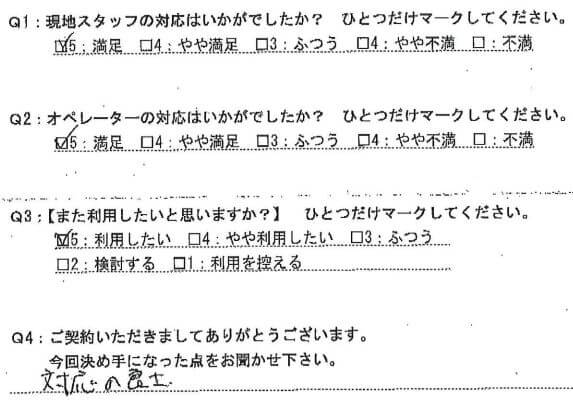 Q1：現地スタッフの対応はいかがでしたか？　ひとつだけマークしてください。
☑5：満足　□4：やや満足　□3：ふつう　□4：やや不満　□：不満
Q2：オペレーターの対応はいかがでしたか？　ひとつだけマークしてください。
☑5：満足　□4：やや満足　□3：ふつう　□4：やや不満　□：不満
Q3：【また利用したいと思いますか？】　ひとつだけマークしてください。
☑5：利用したい　□4：やや利用したい　□3：ふつう
□2：検討する　□1：利用を控える
Q4：ご契約いただきましてありがとうございます。
今回決め手になった点をお聞かせ下さい。
対応の